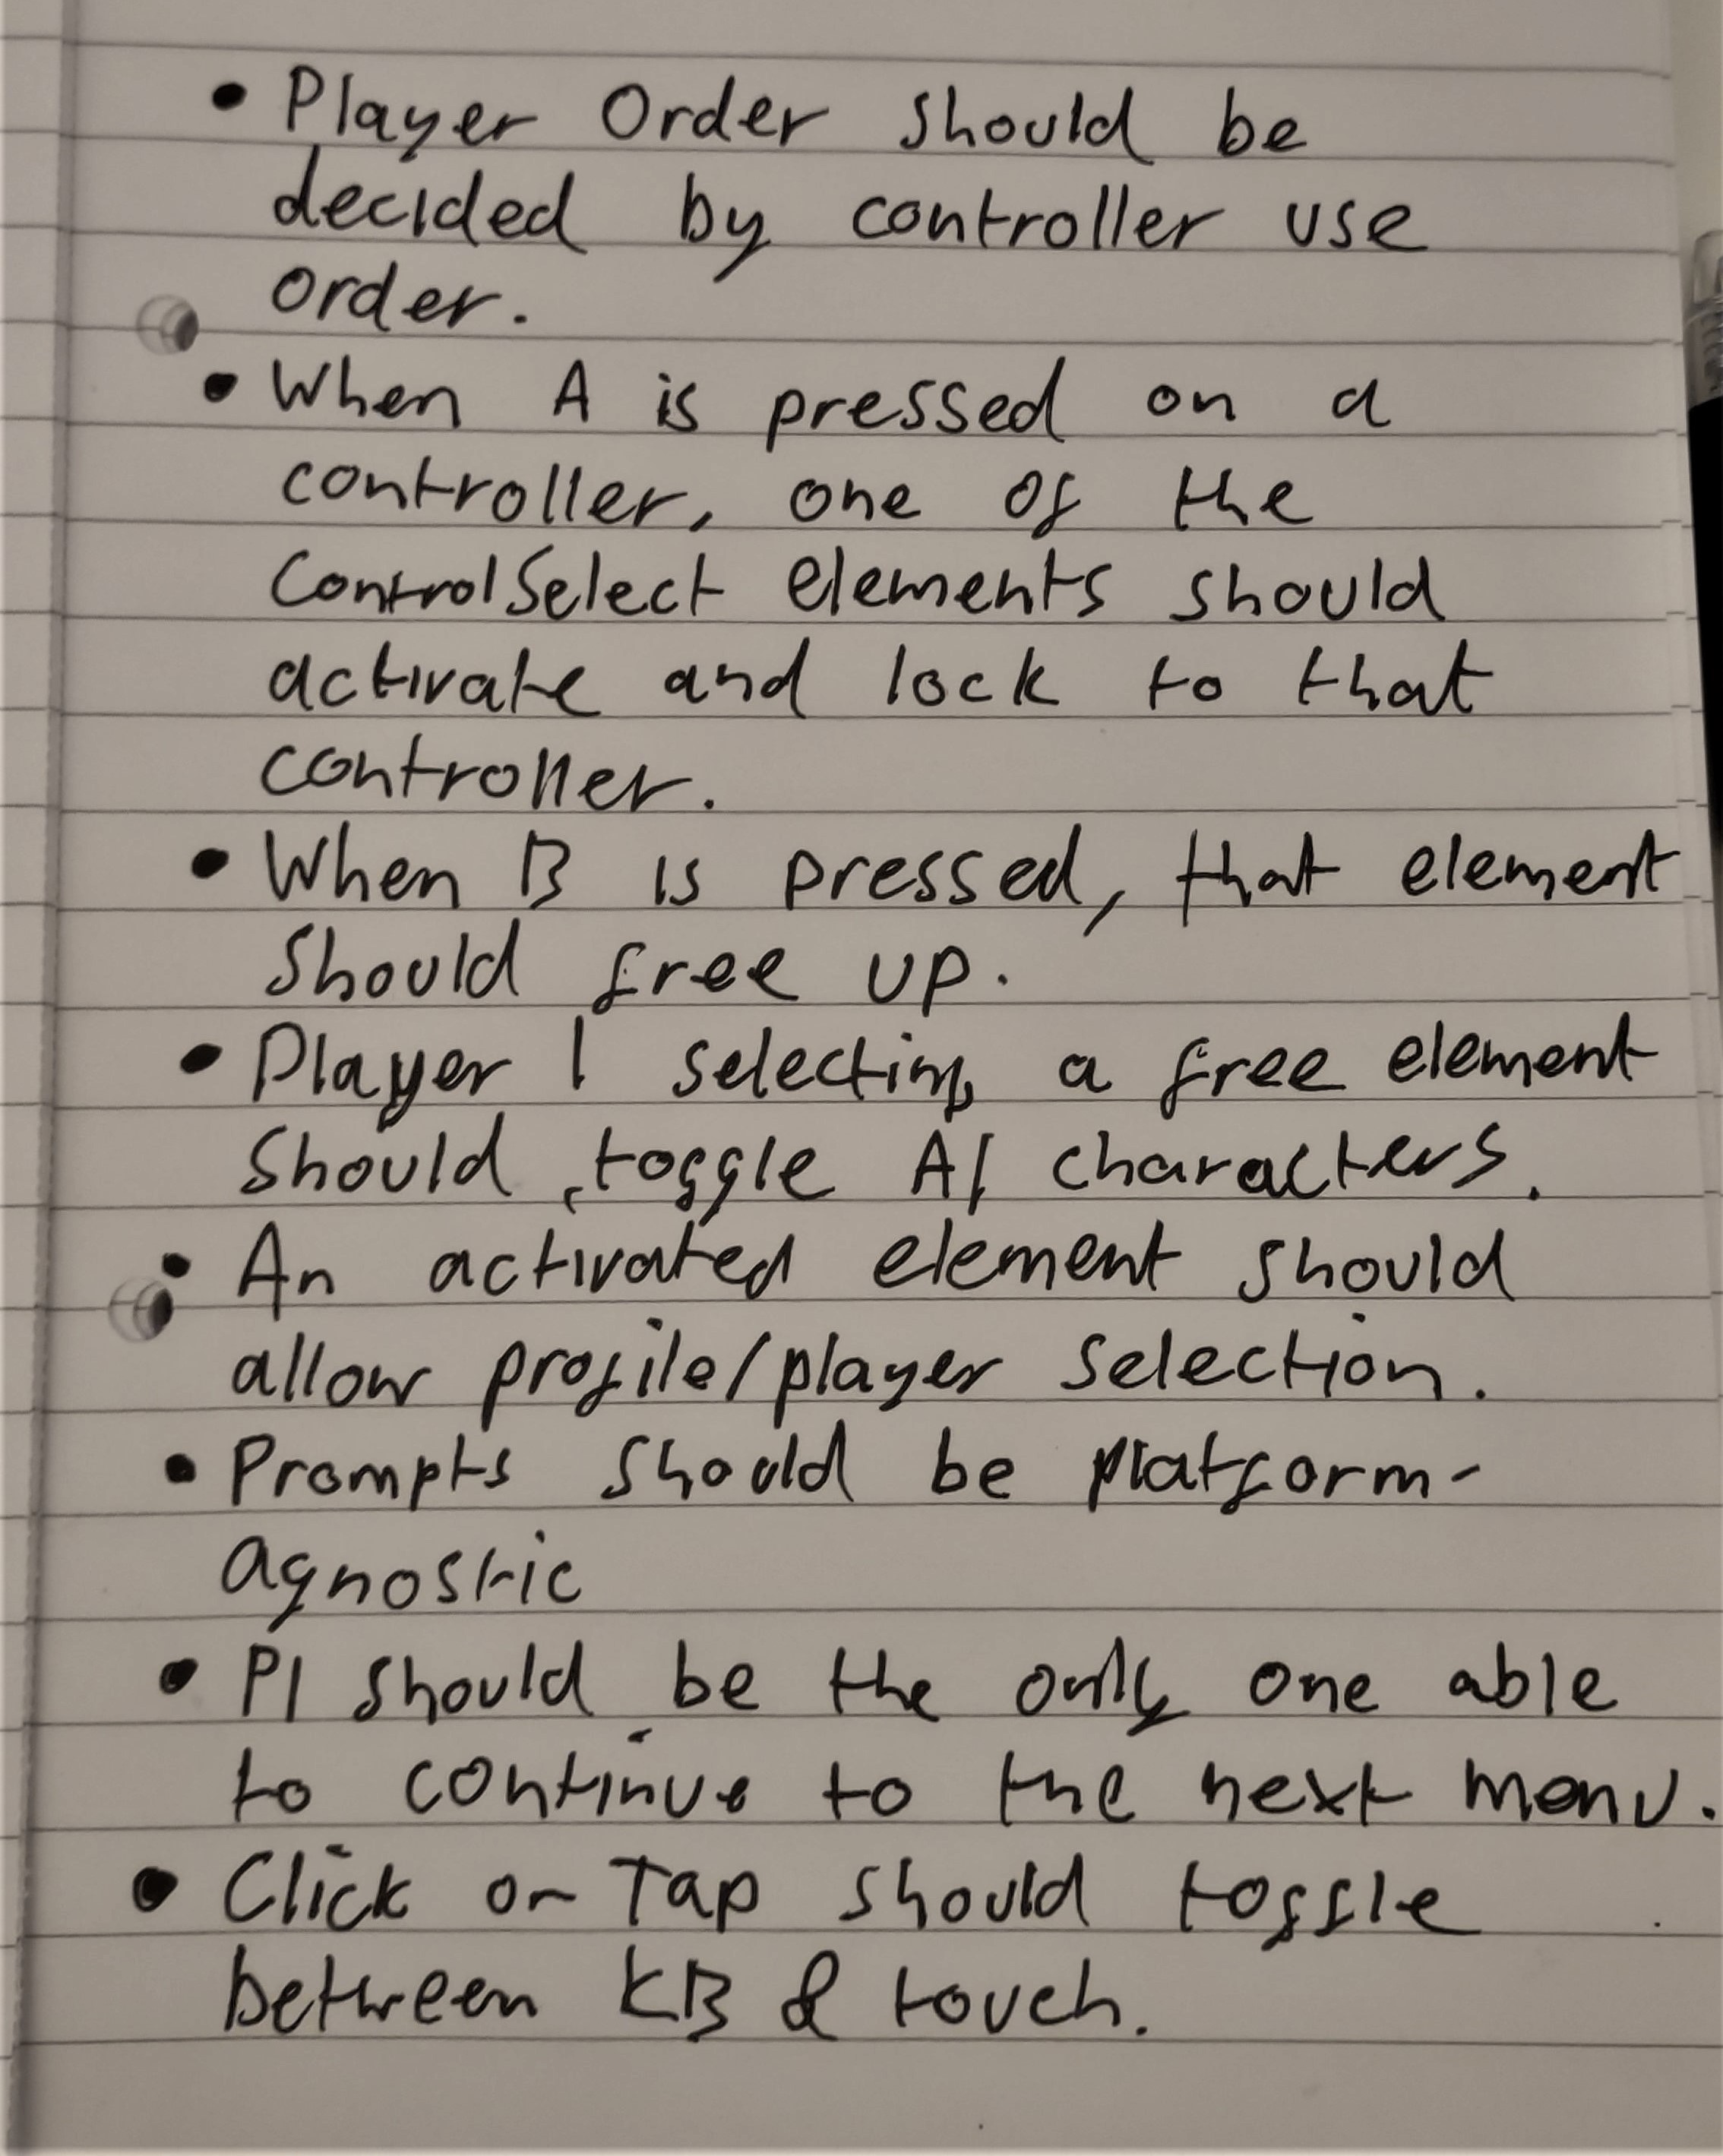 • Player Order should be
decided by controller use
order.
• When A is pressed on a
controller, one of the
ControlSelect elements should
activate and lock to that
controller.
• When B is pressed, that element
should free up.
• Player 1 selecting a free element
should toggle AI characters.
• An activated element should
allow profile/player selection.
• Prompts should be platform-
agnostic
• P1 should be the only one able
to continue to the next menu.
• Click or Tap should toggle
between KB & touch.